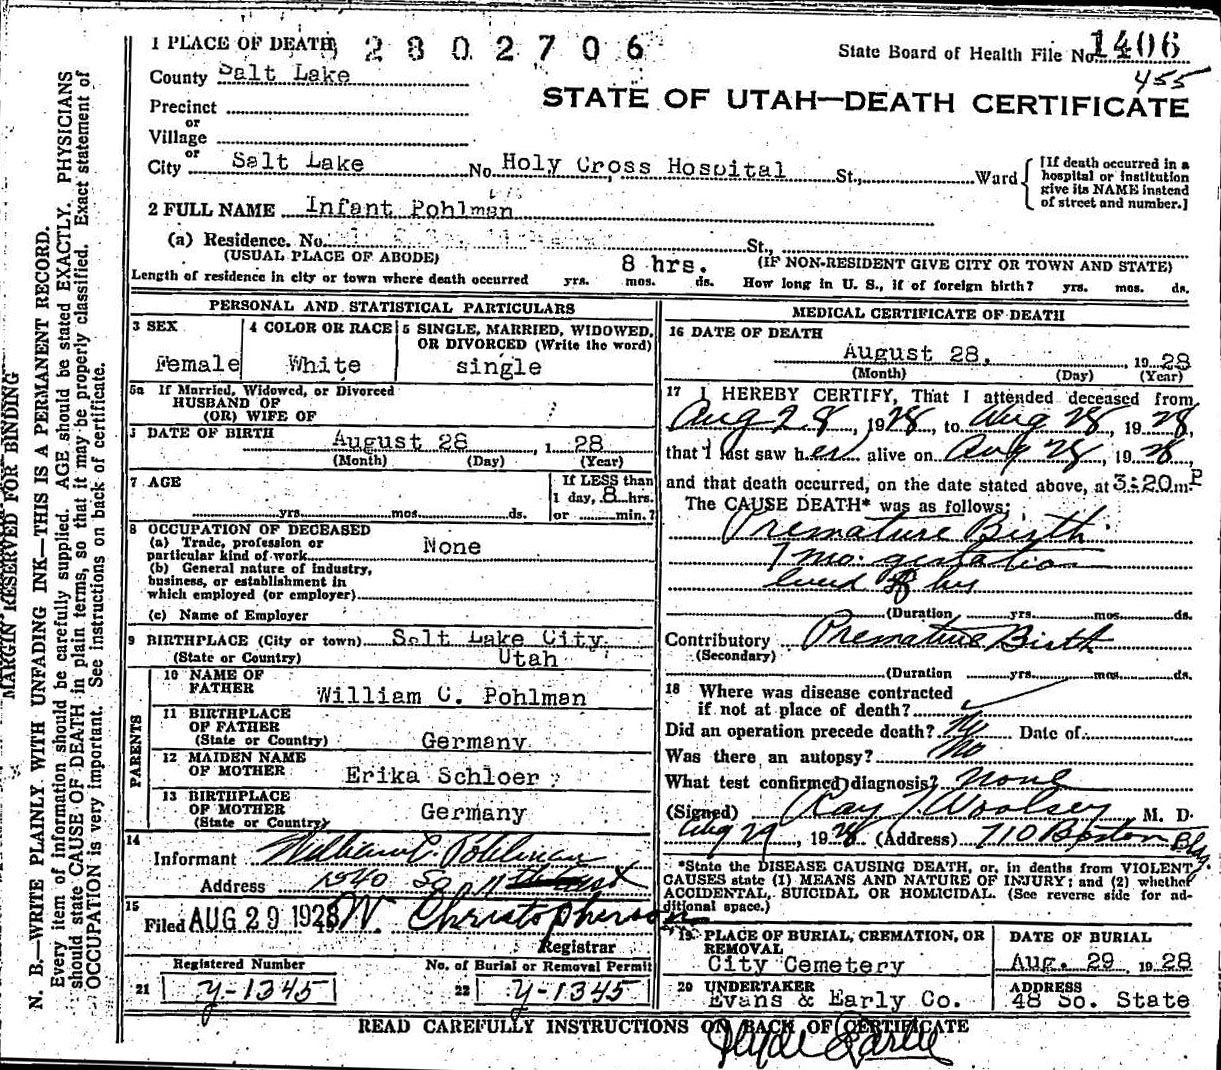 1 PLACE OF DEATH
2802706
State Board of Health File No. 1406
455
County Salt Lake
STATE OF UTAH—DEATH CERTIFICATE
Precinct
or
Village
or
City Salt Lake No. Holy Cross Hospital St., Ward
[If death occurred in a
hospital or institution
give its NAME instead
of street and number.]
2 FULL NAME Infant Pohlman
(a) Residence. No. St.,
(USUAL PLACE OF ABODE) 8 hrs. (IF NON-RESIDENT GIVE CITY OR TOWN AND STATE)
Length of residence in city or town where death occurred yrs. mos. ds. How long in U. S., if of foreign birth? yrs. mos. ds.
PERSONAL AND STATISTICAL PARTICULARS
3 SEX
Female
4 COLOR OR RACE
White
5 SINGLE, MARRIED, WIDOWED,
OR DIVORCED (Write the word)
single
5a If Married, Widowed, or Divorced
HUSBAND OF
(OR) WIFE OF
DATE OF BIRTH
August 28, 1 28
(Month) (Day) (Year)
7 AGE
yrs. mos. ds.
If LESS than
1 day, 8 hrs.
or min.?
8 OCCUPATION OF DECEASED
(a) Trade, profession or
particular kind of work None
(b) General nature of industry,
business, or establishment in
which employed (or employer)
(c) Name of Employer
9 BIRTHPLACE (City or town) Salt Lake City
(State or Country) Utah
PARENTS
10 NAME OF
FATHER William C. Pohlman
11 BIRTHPLACE
OF FATHER
(State or Country) Germany
12 MAIDEN NAME
OF MOTHER Erika Schloer
13 BIRTHPLACE
OF MOTHER
(State or Country) Germany
14
Informant William C. Pohlman
Address 1940 So 11th East
15
Filed AUG 29 1928 W. Christopherson
Registrar
Registered Number
21 Y-1345
No. of Burial or Removal Permit
22 Y-1345
MEDICAL CERTIFICATE OF DEATH
16 DATE OF DEATH
August 28, 1928
(Month) (Day) (Year)
17 I HEREBY CERTIFY, That I attended deceased from
Aug 28, 1928, to Aug 28, 1928,
that I last saw her alive on Aug 28, 1928,
and that death occurred, on the date stated above, at 3:20 m. P
The CAUSE DEATH* was as follows:
Premature Birth
7 mo. gestation
lived 8 hrs
(Duration yrs. mos. ds.
Contributory Premature Birth
(Secondary)
(Duration yrs. mos. ds.
18 Where was disease contracted
if not at place of death?
Did an operation precede death? No Date of
Was there an autopsy? No
What test confirmed diagnosis? None
(Signed) Ray T. Woolsey M. D.
Aug 29, 1928 (Address) 710 Boston Bldg.
*State the DISEASE CAUSING DEATH, or, in deaths from VIOLENT
CAUSES state (1) MEANS AND NATURE OF INJURY; and (2) whether
ACCIDENTAL, SUICIDAL OR HOMICIDAL. (See reverse side for ad-
ditional space.)
19 PLACE OF BURIAL, CREMATION, OR
REMOVAL
City Cemetery
DATE OF BURIAL
Aug. 29 1928
20 UNDERTAKER
Evans & Early Co.
ADDRESS
48 So. State
READ CAREFULLY INSTRUCTIONS ON BACK OF CERTIFICATE
MARGIN RESERVED FOR BINDING
N. B.—WRITE PLAINLY WITH UNFADING INK—THIS IS A PERMANENT RECORD.
Every item of information should be carefully supplied. AGE should be stated EXACTLY. PHYSICIANS
should state CAUSE OF DEATH in plain terms, so that it may be properly classified. Exact statement of
OCCUPATION is very important. See instructions on back of certificate.